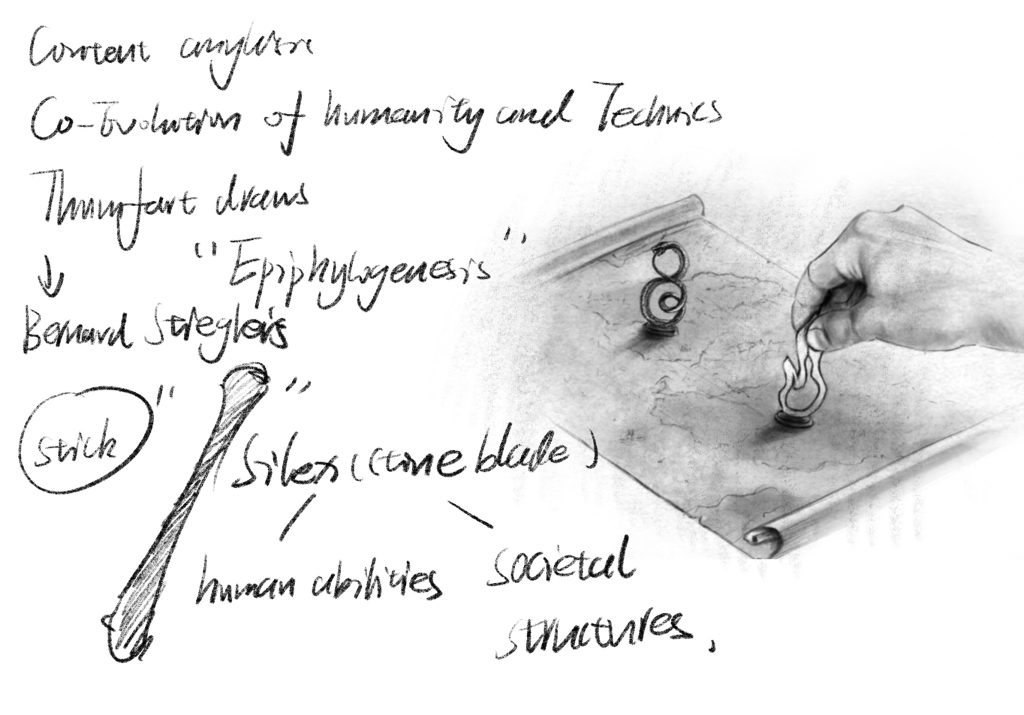 Content
Co-Evolution of humanity and Technics
Thumfart draws
"Epiphylogenesis"
Bernard Stiegler's
stick
" "
Silex (stone blade)
human abilities
societal
structures.